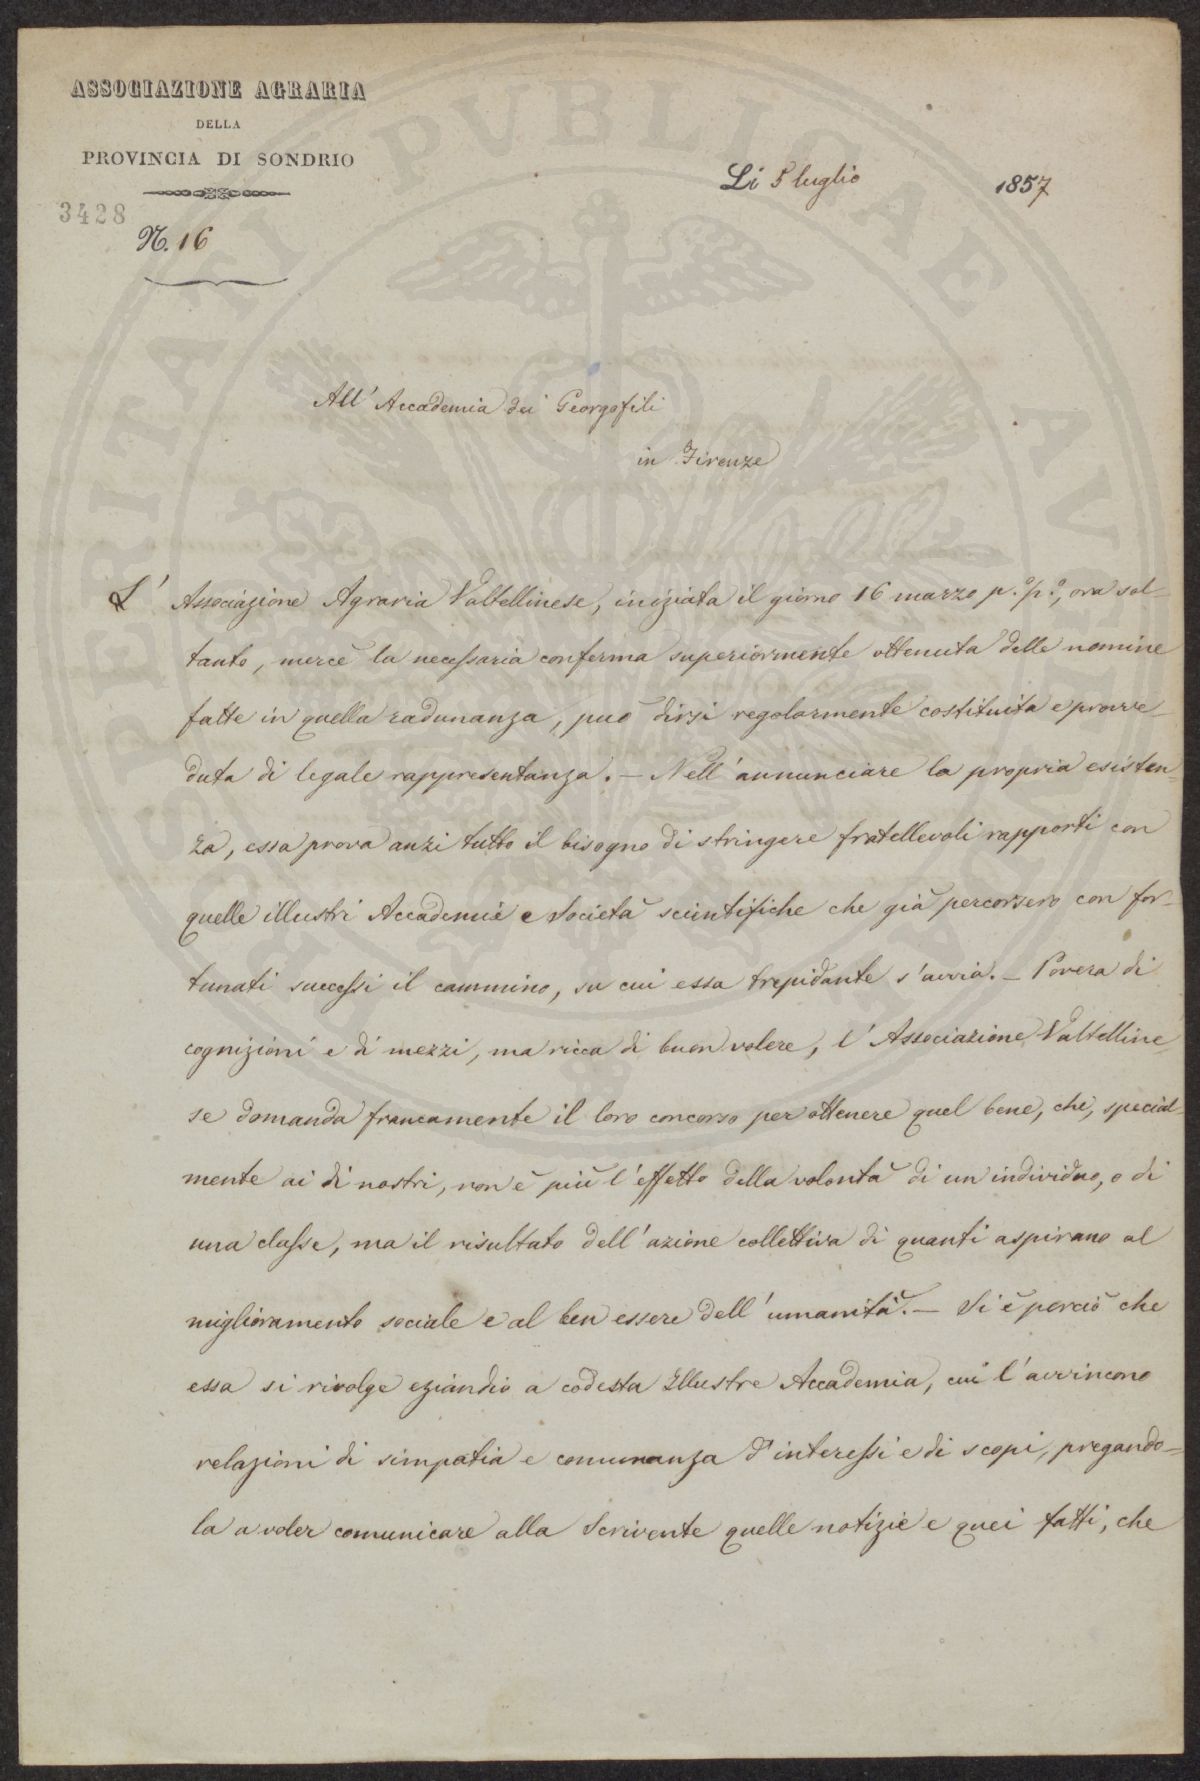 ASSOCIAZIONE AGRARIA
DELLA
PROVINCIA DI SONDRIO
3428
N. 16
Li 5 luglio 1857
All' Accademia dei Georgofili
in Firenze
L' Associazione Agraria Valtellinese, iniziata il giorno 16 marzo p.º p.º, ora sol-
tanto, mercè la necessaria conferma superiormente ottenuta delle nomine
fatte in quella radunanza, può dirsi regolarmente costituita e provve-
duta di legale rappresentanza. — Nell' annunciare la propria esisten-
za, essa prova anzi tutto il bisogno di stringere fratellevoli rapporti con
quelle illustri Accademie e Società scientifiche che già percorsero con for-
tunati successi il cammino, su cui essa trepidante s'avvia. — Povera di
cognizioni e di mezzi, ma ricca di buon volere, l' Associazione Valtelline-
se domanda francamente il loro concorso per ottenere quel bene, che, special-
mente ai dì nostri, non è più l'effetto della volontà di un individuo, o di
una classe, ma il risultato dell' azione collettiva di quanti aspirano al
miglioramento sociale e al ben essere dell' umanità. — Si è perciò che
essa si rivolge eziandio a codesta Illustre Accademia, cui l' avvincono
relazioni di simpatia e comunanza d' interessi e di scopi, pregando-
la a voler comunicare alla Scrivente quelle notizie e quei fatti, che
PROSPERITATI PVBLICAE AVGENDAE